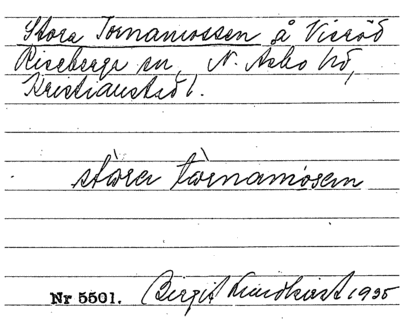 Stora Tornamossen å Visröd
Riseberga sn, N. Asbo hd,
Kristianstad l.
stòra tòrnamósen
Nr 5501. Birgit Lundkvist 1935